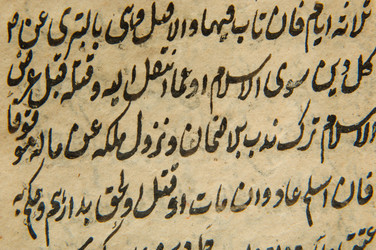 ثلاثة ايام فان تاب فبها والا قتل وهي بالتبري عن
كل دين سوى الاسلام او عما انتقل اليه وقتله قبل عرض
الاسلام ترك ندب بلا ضمان ونزول ملكه عن ماله موقوفا
فان اسلم عاد وان مات او قتل او لحق بدارهم وحكم به